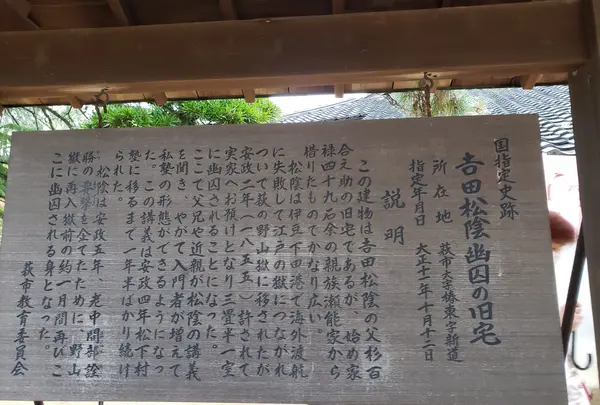 国指定史跡
吉田松陰幽囚の旧宅
所在地 萩市大字椿東字新道
指定年月日 大正十一年十月十二日
説明
この建物は吉田松陰の父杉百
合之助の旧宅であるが、始め家
禄四十九石余の親族瀬能家から
借りたものでかなり広い。
松陰は伊豆下田港で海外渡航
に失敗して江戸の獄につながれ
ついで萩の野山獄に移されたが
安政二年(一八五五)許されて
実家へお預けとなり三畳半一室
に幽囚されることになった。
ここで父兄や近親が松陰の講義
を聞き、やがて入門者が増えて
私塾の形態ができるようになっ
た。この講義は安政四年松下村
塾に移るまで一年半ばかり続け
られた。
松陰は安政五年 老中間部詮
勝の要撃を企てたために、野山
獄に再入獄前の約一月間再びこ
こに幽囚される身となった。
萩市教育委員会